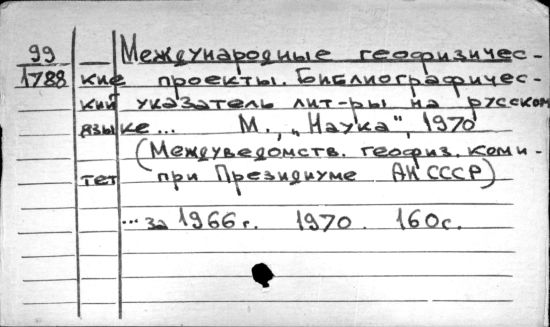 99 Международные геофизичес-
1788 кие проекты. Библиографичес-
кий указатель лит-ры на русском
языке... М., „Наука", 1970
(Междуведомств. геофиз. коми-
тет при Президиуме АН СССР)
...за 1966 г. 1970. 160с.